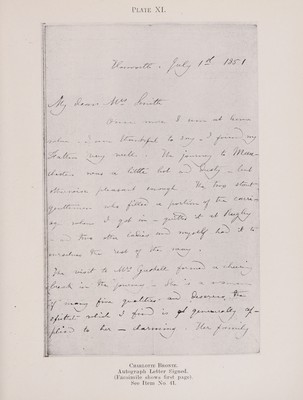 PLATE XI.
Haworth. July 1st 1851
My dear Mrs Smith
Once more I am at home
where - I am thankful to say - I found my
Father very well. The journey to Man-
chester was a little hot and dusty - but
otherwise pleasant enough. The two stout
gentlemen who filled a portion of the carri-
age when I got in - quitted it at Rugby
- and two other ladies and myself had it to
ourselves the rest of the way.
The visit to Mrs Gaskell formed a cheering
break in the journey - She is a woman
of many fine qualities and deserves the
epithet which I find is generally ap-
plied to her - charming. Her family
CHARLOTTE BRONTE.
Autograph Letter Signed.
(Facsimile shows first page).
See Item No. 41.